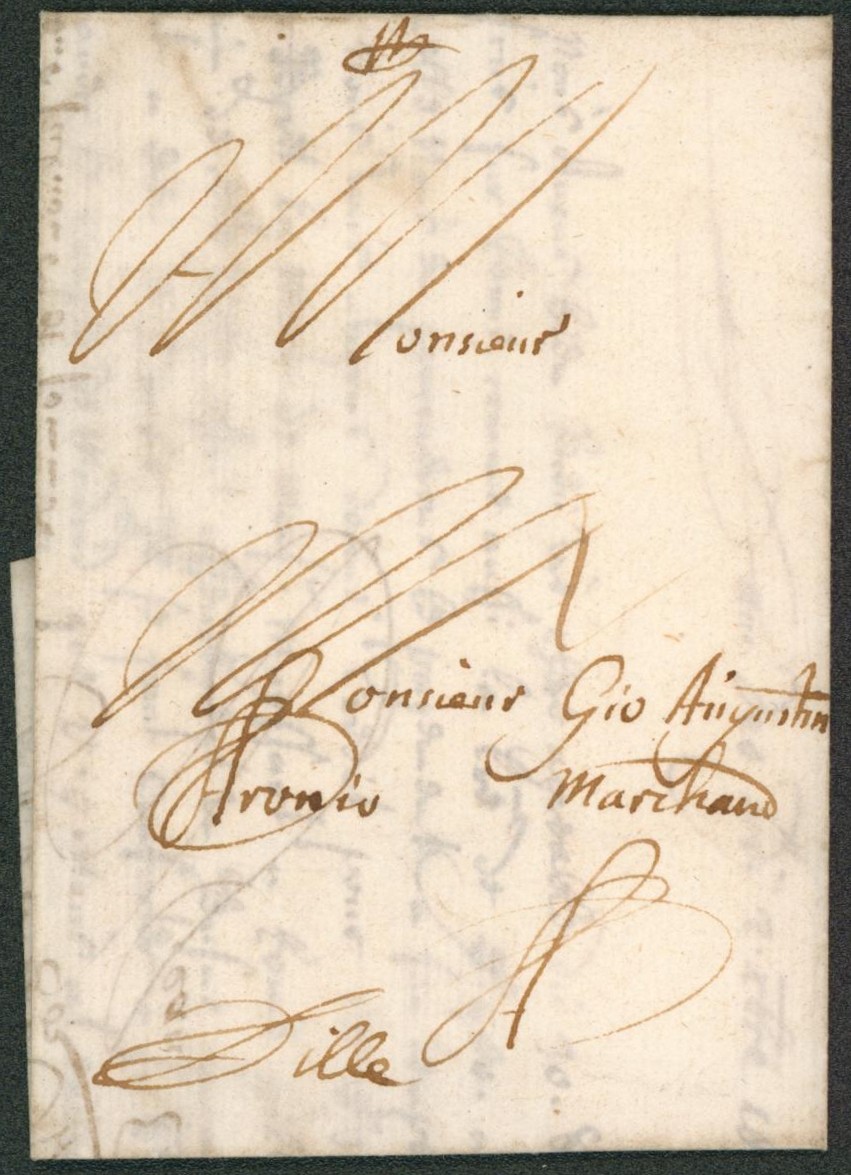 Monsieur
Monsieur Gio Augustin
Aronio Marchand
A
Lille